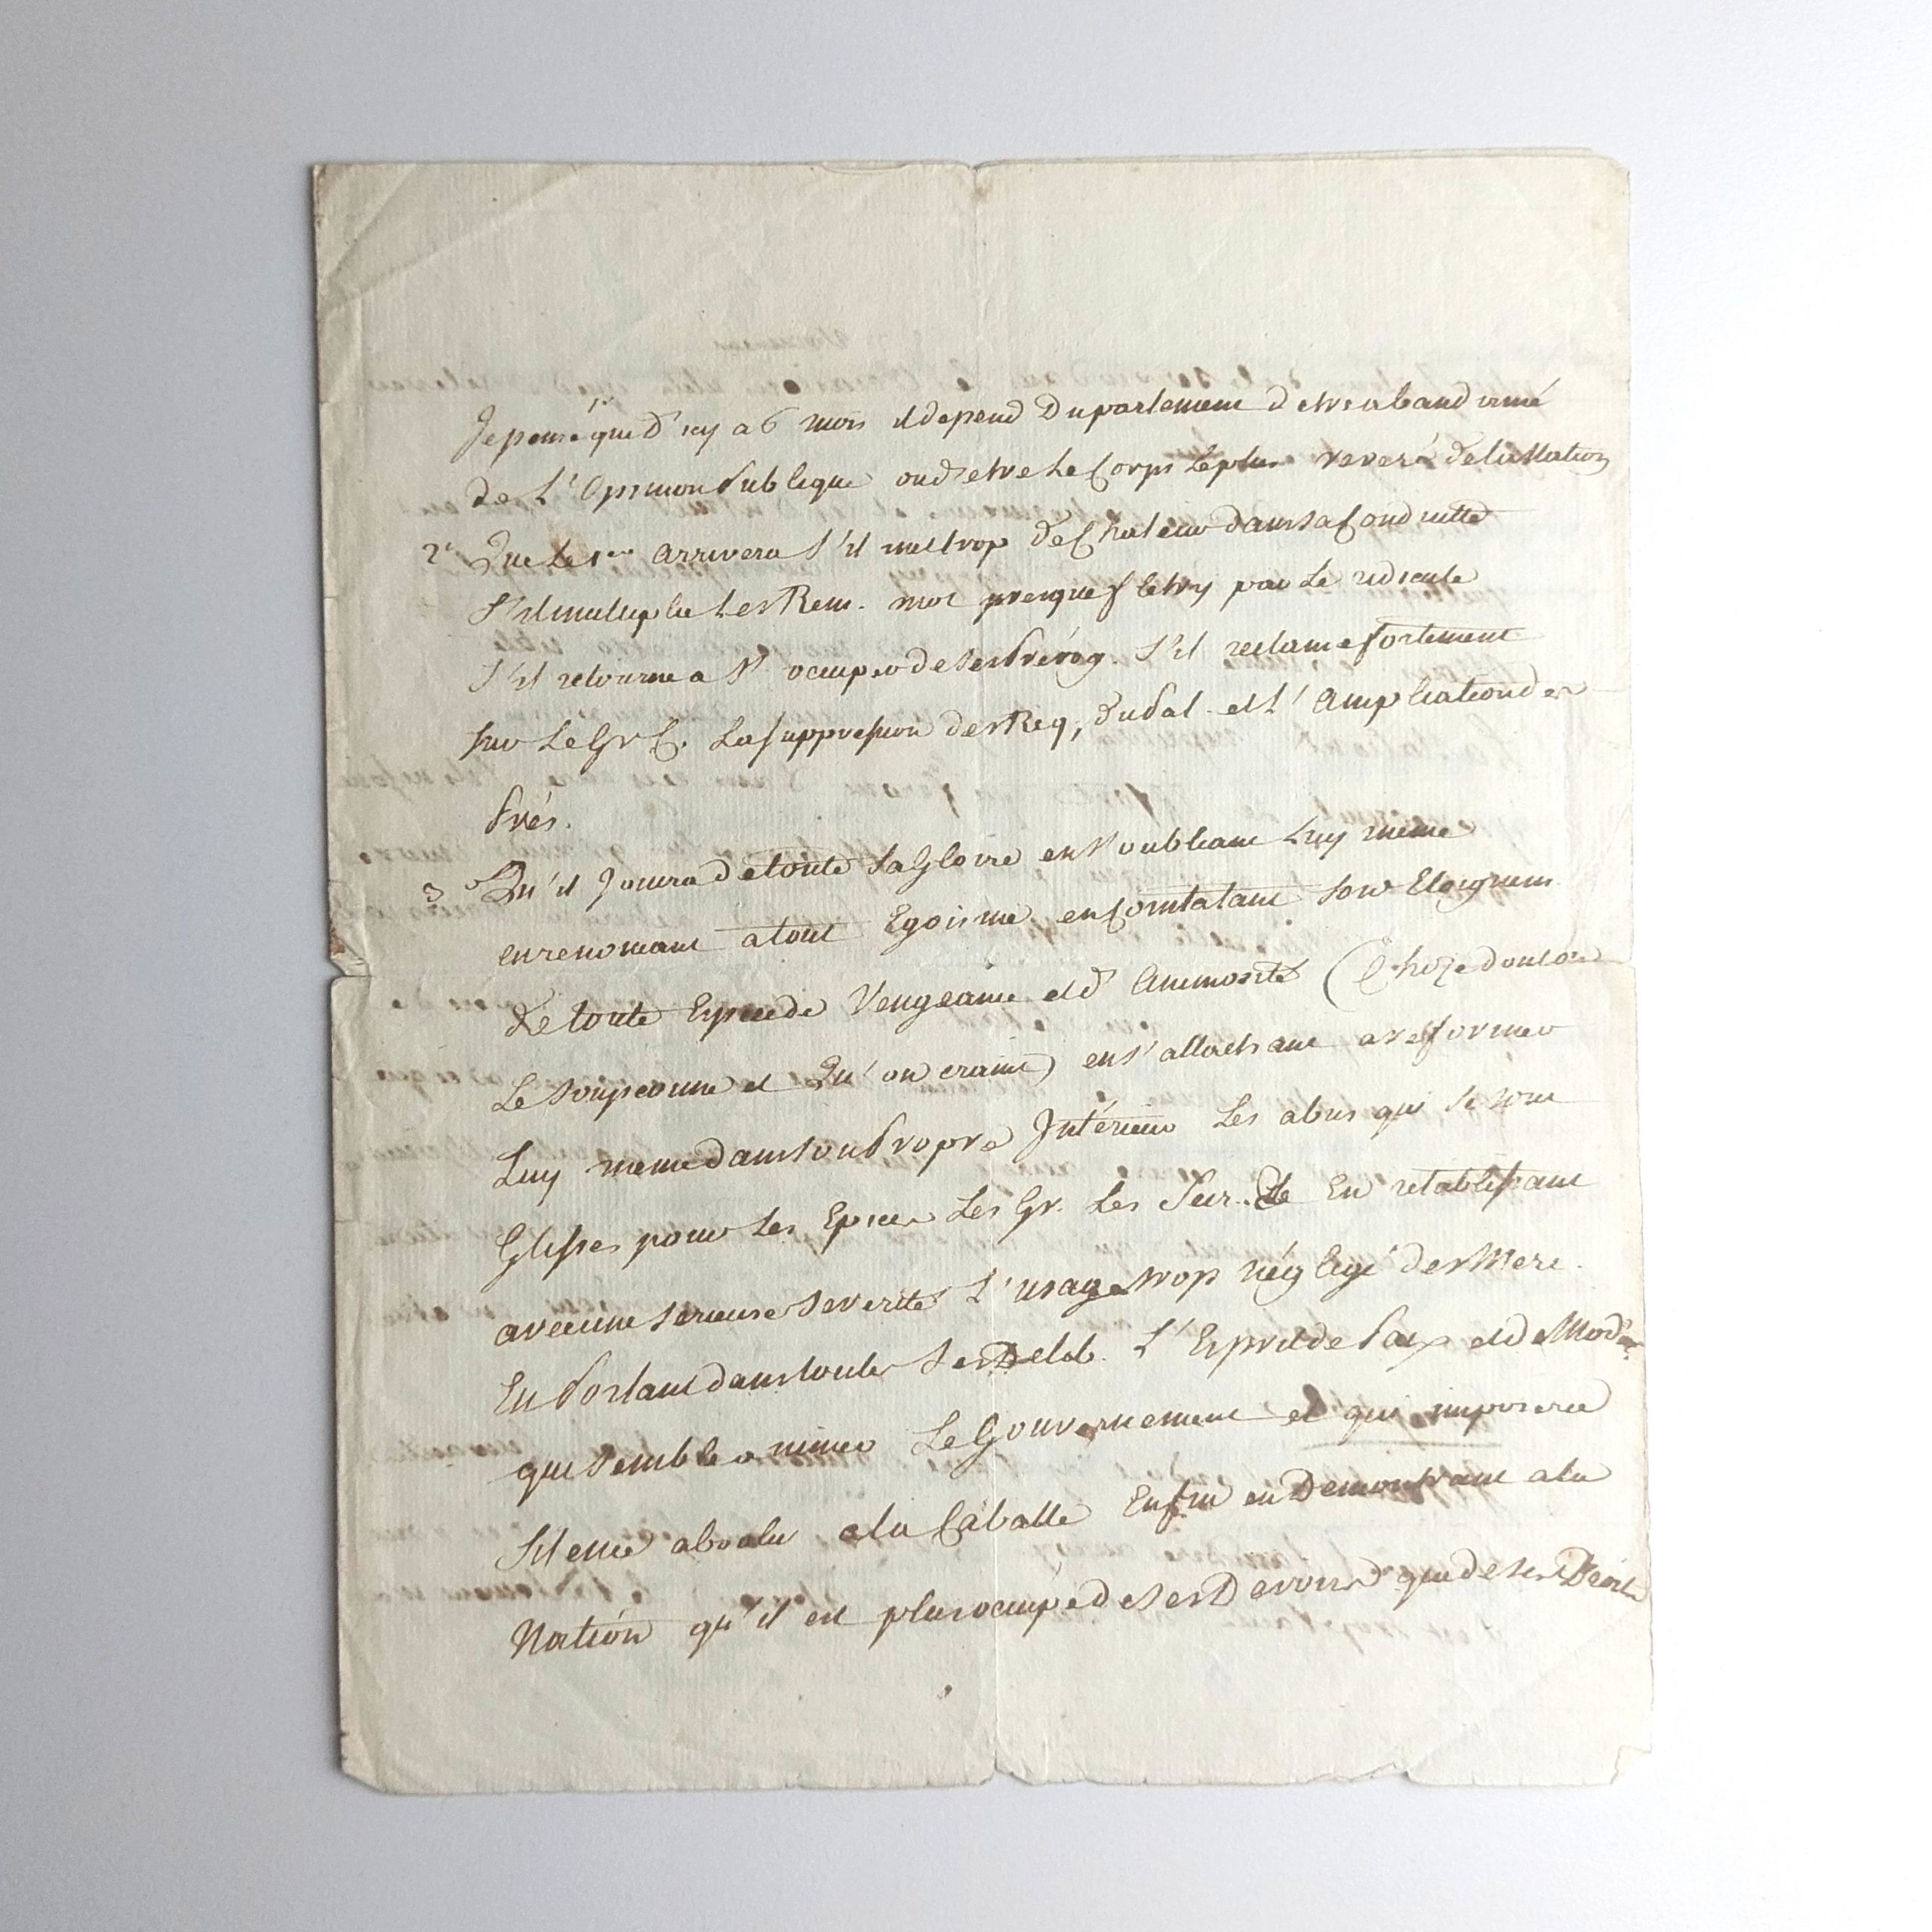 1°
Je pense que d'icy a 6 mois il depend Du parlement d'etre abandonné
de L'Opinion Publique ou d'etre Le Corps Le plus reveré de la Nation
2° Que Le 1er arrivera S'il met trop de Chaleur dans sa Conduitte
S'il multiplie Les Rem. mot presque fletry par Le ridicule
S'il retourne a S'ocuper de Ses Prérog. S'il reclame fortement
sur Le Gr C. La suppression des Req, du Pal. et L'Ampliation des
Prés.
3° Qu'il Jouira de toute Sa Gloire en S'oubliant Luy meme
en renonceant a tout Egoisme en Constatant Son Eloignem.
de toute Espece de Vengeance et d'Animosité (Choze dont on
Le Soupconne et Qu'on craint) en S'attachant a reformer
Luy meme dans Son Propre Intérieur Les abus qui Se Sont
Glissés pour Les Epices Les Gr. Les Secr. En retablissant
avec une Serieuse Severité L'usage trop négligé des Merc.
En Portant dans toutes Ses Delib. L'Esprit de Paix et de Moder.
qui Semble animer Le Gouvernement et qui imposera
Silence absolu a la Caballe Enfin en Demontrant a la
Nation qu'il est plus ocupé de Ses Devoirs que de Ses Droits